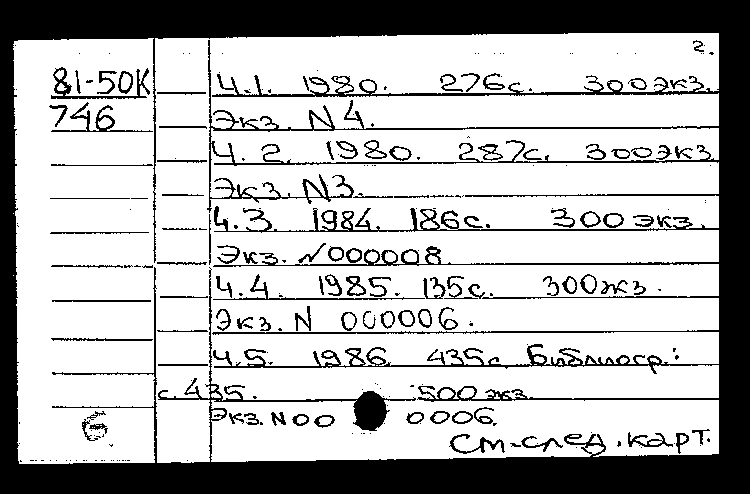 2.
81-50К Ч.1. 1980. 276с. 300экз.
746 Экз. N 4.
Ч. 2. 1980. 287с. 300экз
Экз. N3.
Ч.3. 1984. 186с. 300 экз.
Экз. N000008.
Ч.4. 1985. 135с. 300экз.
Экз. N 000006.
Ч.5. 1986. 435с. Библиогр.:
с. 435. 500 экз.
Экз. N00 0006.
Б См.след.карт.